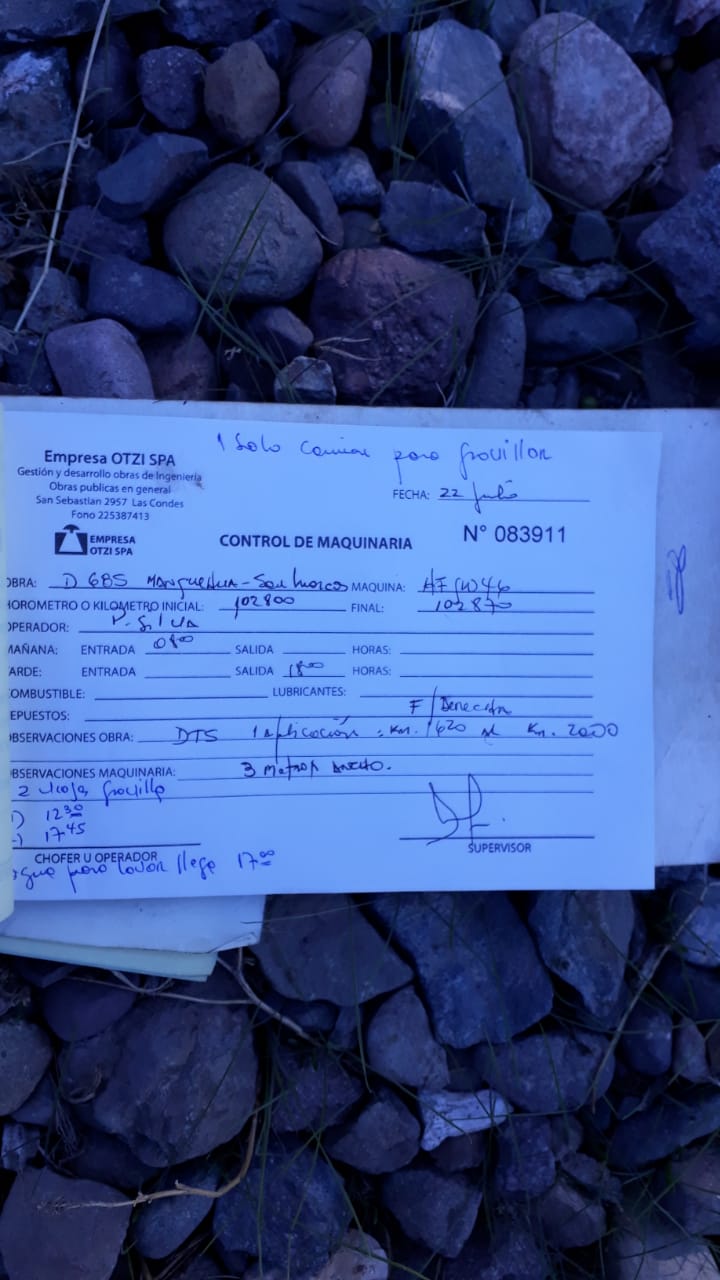 1 Solo camion para gravillar
Empresa OTZI SPA
Gestión y desarrollo obras de Ingenieria
Obras publicas en general
San Sebastian 2957 Las Condes
Fono 225387413
FECHA: 22 Julio
EMPRESA
OTZI SPA
CONTROL DE MAQUINARIA
N° 083911
OBRA: D 685 Manquehua - San Marcos MAQUINA:
HOROMETRO O KILOMETRO INICIAL: 102800 FINAL: 102870
OPERADOR: P. Silva
MAÑANA: ENTRADA 0800 SALIDA HORAS:
TARDE: ENTRADA SALIDA 1800 HORAS:
COMBUSTIBLE: LUBRICANTES:
REPUESTOS: F/Derecha
OBSERVACIONES OBRA: DTS 1 Aplicación: Km. 1620 al Km. 2000
OBSERVACIONES MAQUINARIA: 3 Metros Ancho.
2 gravilla
1) 12 30
17 45
CHOFER U OPERADOR
SUPERVISOR
agua para lavar llega 17 00